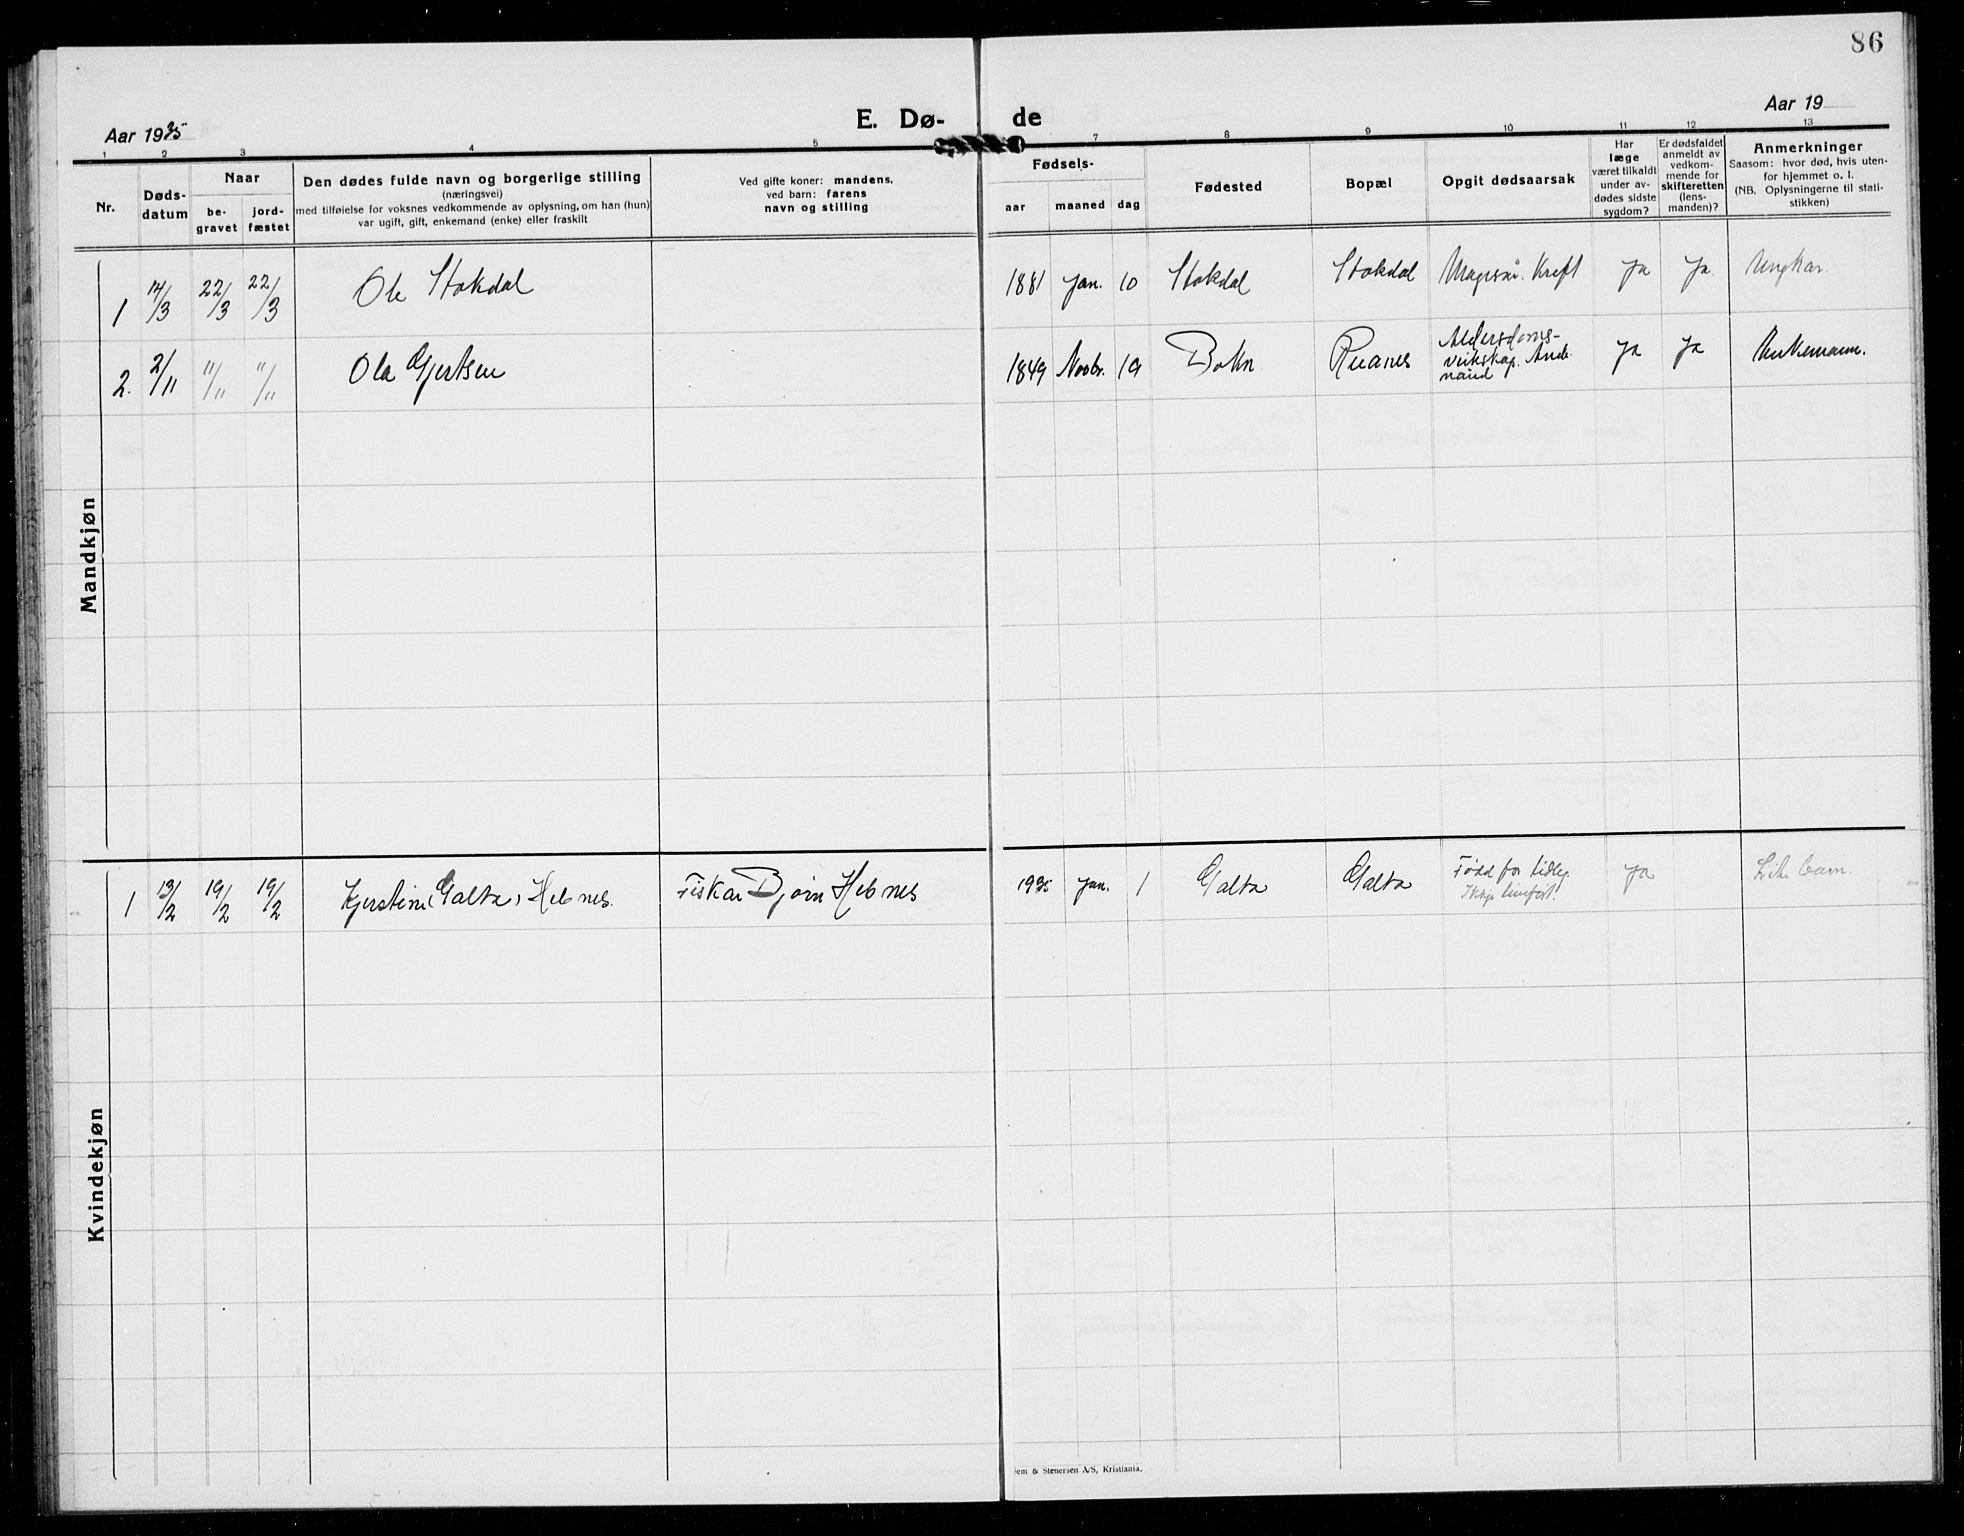 86
Aar 1935
E. Dø-
de
Aar 19
1 2 3 4 5 7 8 9 10 11 12 13
Nr.
Døds-
datum
Naar
be-
gravet
jord-
fæstet
Den dødes fulde navn og borgerlige stilling
(næringsvei)
med tilføielse for voksnes vedkommende av oplysning, om han (hun)
var ugift, gift, enkemand (enke) eller fraskilt
Ved gifte koner: mandens,
ved barn: farens
navn og stilling
Fødsels-
aar maaned dag
Fødested
Bopæl
Opgit dødsaarsak
Har
læge
været tilkaldt
under av-
dødes sidste
sygdom?
Er dødsfaldet
anmeldt av
vedkom-
mende for
skifteretten
(lens-
manden)?
Anmerkninger
Saasom: hvor død, hvis uten-
for hjemmet o. l.
(NB. Oplysningerne til stati-
stikken)
Mandkjøn
1 14/3 22/3 22/3 Ole Stokdal 1881 Jan. 10 Stokdal Stokdal Magesår. Kreft Ja Ja Ungkar.
2. 2/11 11/11 11/11 Ola Gjertsen 1849 Novbr. 19 Bokn
Alderdoms-
veikskap. Ande-
naud
Ja Ja Enkemann.
Kvindekjøn
1 13/2 19/2 19/2 Kjerstine (Galta) Hebnes. Fiskar Bjørn Hebnes 1935 Jan. 1 Galta Galta Født for tidleg.
Ikkje livsført.
Ja
Lite barn.
& Stenersen A/S, Kristiania.